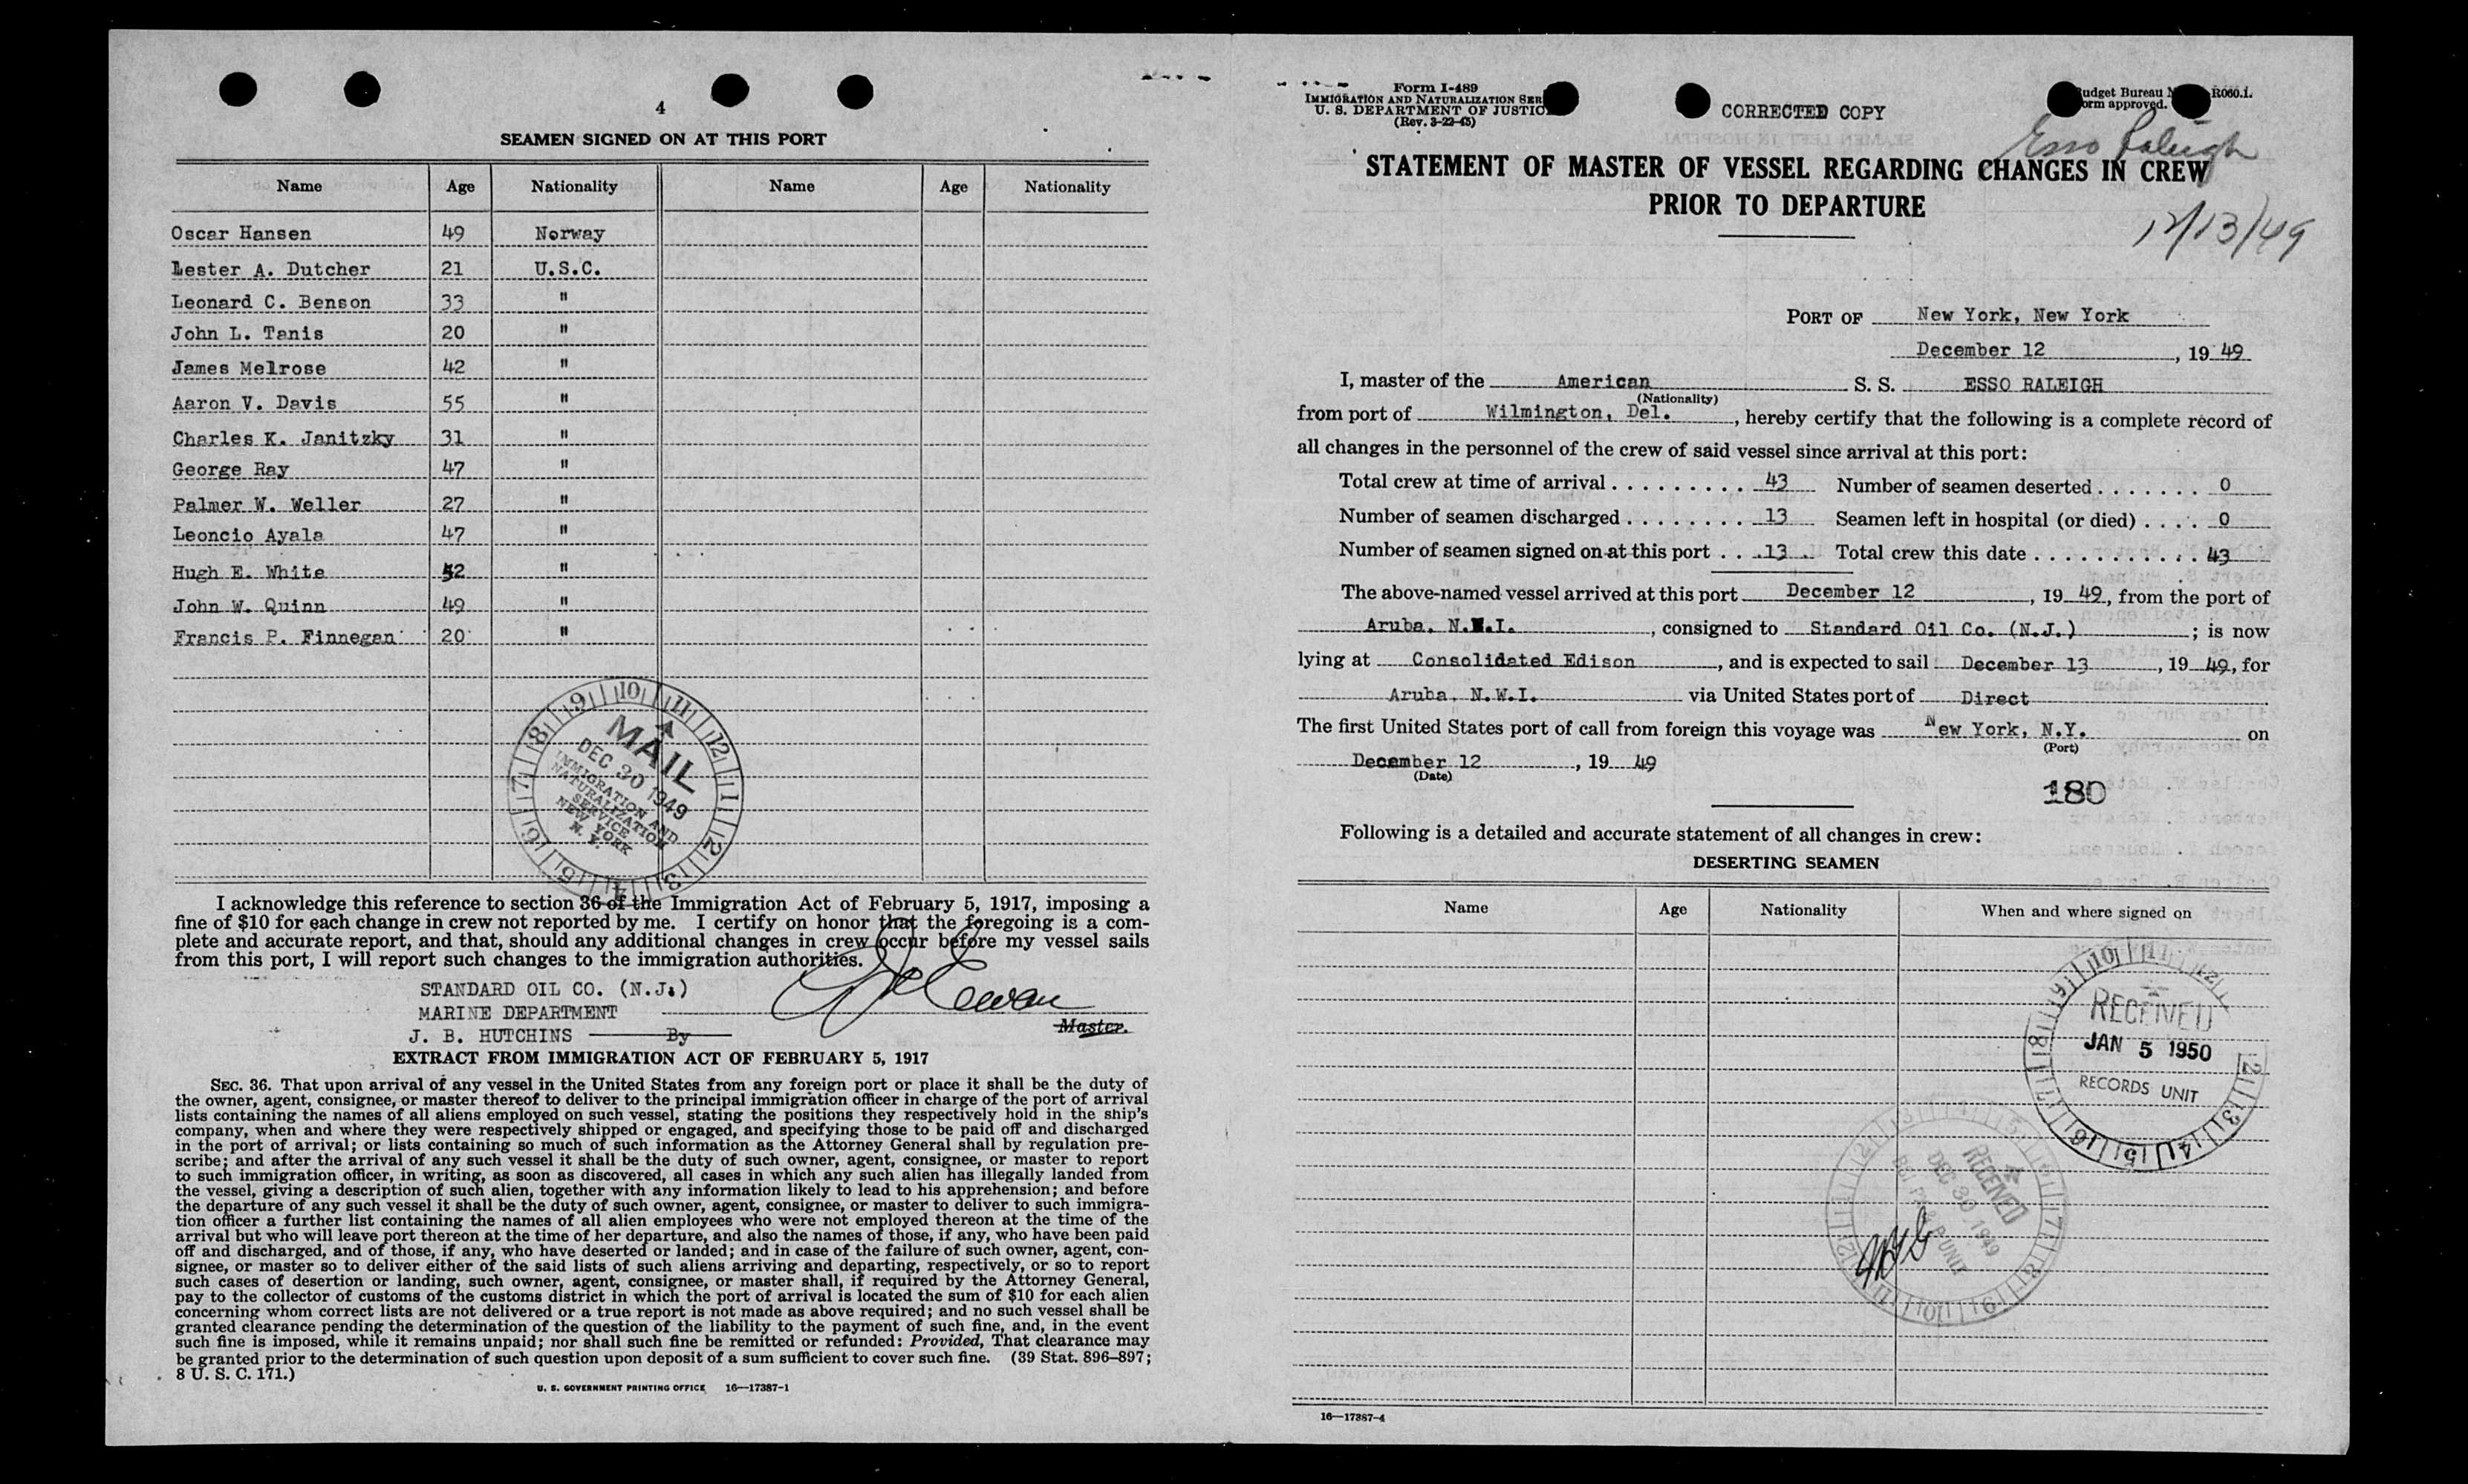 4
SEAMEN SIGNED ON AT THIS PORT
Name Age Nationality Name Age Nationality
Oscar Hansen 49 Norway
Lester A. Dutcher 21 U.S.C.
Leonard C. Benson 33 "
John L. Tanis 20 "
James Melrose 42 "
Aaron V. Davis 55 "
Charles K. Janitzky 31 "
George Ray 47 "
Palmer W. Weller 27 "
Leoncio Ayala 47 "
Hugh E. White 52 "
John W. Quinn 49 "
Francis P. Finnegan 20 "
MAIL
DEC 30 1949
IMMIGRATION AND
NATURALIZATION
SERVICE
NEW YORK
N. Y.
I acknowledge this reference to section 36 of the Immigration Act of February 5, 1917, imposing a
fine of $10 for each change in crew not reported by me. I certify on honor that the foregoing is a com-
plete and accurate report, and that, should any additional changes in crew occur before my vessel sails
from this port, I will report such changes to the immigration authorities.
STANDARD OIL CO. (N.J.)
MARINE DEPARTMENT
J. B. HUTCHINS By Master.
EXTRACT FROM IMMIGRATION ACT OF FEBRUARY 5, 1917
SEC. 36. That upon arrival of any vessel in the United States from any foreign port or place it shall be the duty of
the owner, agent, consignee, or master thereof to deliver to the principal immigration officer in charge of the port of arrival
lists containing the names of all aliens employed on such vessel, stating the positions they respectively hold in the ship's
company, when and where they were respectively shipped or engaged, and specifying those to be paid off and discharged
in the port of arrival; or lists containing so much of such information as the Attorney General shall by regulation pre-
scribe; and after the arrival of any such vessel it shall be the duty of such owner, agent, consignee, or master to report
to such immigration officer, in writing, as soon as discovered, all cases in which any such alien has illegally landed from
the vessel, giving a description of such alien, together with any information likely to lead to his apprehension; and before
the departure of any such vessel it shall be the duty of such owner, agent, consignee, or master to deliver to such immigra-
tion officer a further list containing the names of all alien employees who were not employed thereon at the time of the
arrival but who will leave port thereon at the time of her departure, and also the names of those, if any, who have been paid
off and discharged, and of those, if any, who have deserted or landed; and in case of the failure of such owner, agent, con-
signee, or master so to deliver either of the said lists of such aliens arriving and departing, respectively, or so to report
such cases of desertion or landing, such owner, agent, consignee, or master shall, if required by the Attorney General,
pay to the collector of customs of the customs district in which the port of arrival is located the sum of $10 for each alien
concerning whom correct lists are not delivered or a true report is not made as above required; and no such vessel shall be
granted clearance pending the determination of the question of the liability to the payment of such fine, and, in the event
such fine is imposed, while it remains unpaid; nor shall such fine be remitted or refunded: Provided, That clearance may
be granted prior to the determination of such question upon deposit of a sum sufficient to cover such fine. (39 Stat. 896–897;
8 U. S. C. 171.)
U. S. GOVERNMENT PRINTING OFFICE 16—17387-1
Form I-489
IMMIGRATION AND NATURALIZATION SER
U. S. DEPARTMENT OF JUSTIC
(Rev. 3-22-45)
CORRECTED COPY
udget Bureau R060.1.
orm approved.
Esso Raleigh
STATEMENT OF MASTER OF VESSEL REGARDING CHANGES IN CREW
PRIOR TO DEPARTURE
12/13/49
PORT OF New York, New York
December 12, 19 49
I, master of the American S. S. ESSO RALEIGH
(Nationality)
from port of Wilmington, Del., hereby certify that the following is a complete record of
all changes in the personnel of the crew of said vessel since arrival at this port:
Total crew at time of arrival . . . . . . . . . 43 Number of seamen deserted . . . . . . . 0
Number of seamen discharged . . . . . . . . 13 Seamen left in hospital (or died) . . . . 0
Number of seamen signed on at this port . . . 13 Total crew this date . . . . . . . . . . . 43
The above-named vessel arrived at this port December 12, 19 49, from the port of
Aruba, N.W.I., consigned to Standard Oil Co. (N.J.); is now
lying at Consolidated Edison, and is expected to sail December 13, 19 49, for
Aruba, N.W.I. via United States port of Direct
The first United States port of call from foreign this voyage was New York, N.Y. on
(Port)
December 12, 19 49
(Date)
180
Following is a detailed and accurate statement of all changes in crew:
DESERTING SEAMEN
Name Age Nationality When and where signed on
RECEIVED
JAN 5 1950
RECORDS UNIT
RECEIVED
DEC 30 1949
UNIT
16—17387-4